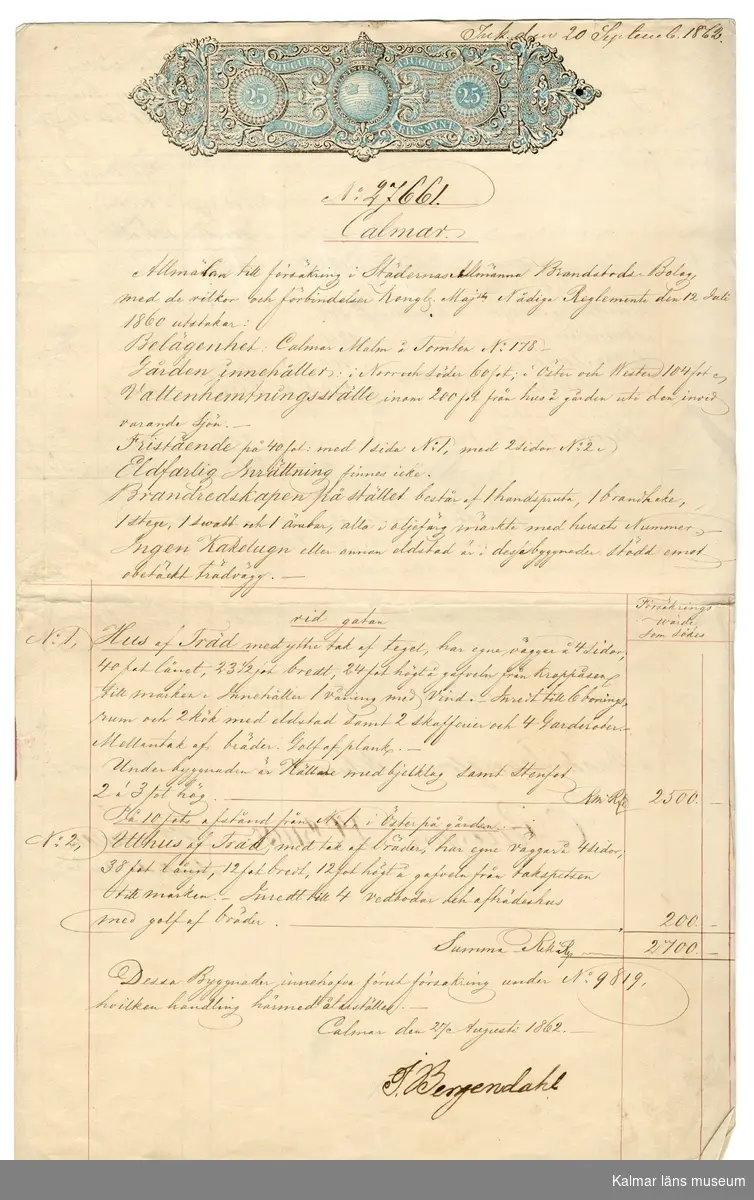 Ink. den 20 Septemb. 1862.
TJUGUFEM TJUGUFEM
25 25
ÖRE RIKSMYNT
No 27661.
Calmar.
Allmälan till försäkring i Städernas Allmänna Brandstods-Bolag,
med de vilkor och förbindelser Kongl. Maj:ts Nådiga Reglemente den 12 Juli
1860 utstakar:
Belägenhet: Calmar Malm å Tomten No 178.-
Gården innehåller: i Norr och Söder 60 fot; i Öster och Wester 104 fot.
Vattenhemtningsställe inom 200 fot från hus å gården uti den invid
varande Sjön.-
Fristående på 40 fot: med 1 sida No 1, med 2 sidor No 2.
Eldfarlig Inrättning finnes icke.
Brandredskapen på stället består af 1 handspruta, 1 brandhake,
1 stege, 1 svabb och 1 ämbar, alla i oljefärg märkte med husets Nummer.
Ingen Kakelugn eller annan eldstad är i dessa byggnader stödd emot
obetäckt trädvägg.-
Försäkrings
wärde
som sökes
vid gatan
No 1, Hus af Träd med yttre tak af tegel, har egne väggar å 4 sidor,
40 fot långt, 23 1/2 fot bredt, 24 fot högt å gafveln från kroppåsen
till marken. Innehåller 1 våning med Vind.- Inredt till 6 bonings-
rum och 2 kök med eldstad samt 2 skafferier och 4 Garderober.-
Mellantak af bräder. Golf af plank.-
Under byggnaden är Källare med bjelklag samt Stenfot
2 à 3 fot hög. Rmt Rd 2500.-
På 10 fots afstånd från No 1 i Öster på gården.-
No 2, Uthus af Träd, med tak af bräder, har egne väggar å 4 sidor,
38 fot långt, 12 fot bredt, 12 fot högt å gafveln från takspetsen
till marken.- Inredt till 4 vedbodar och afträdeshus
med golf af bräder. 200.-
Summa Rmt Rd 2700.-
Dessa Byggnader innehafva förut försäkring under No 9819,
hvilken handling härmed återställes.-
Calmar den 27 Augusti 1862.-
J. Bergendahl
Kalmar läns museum